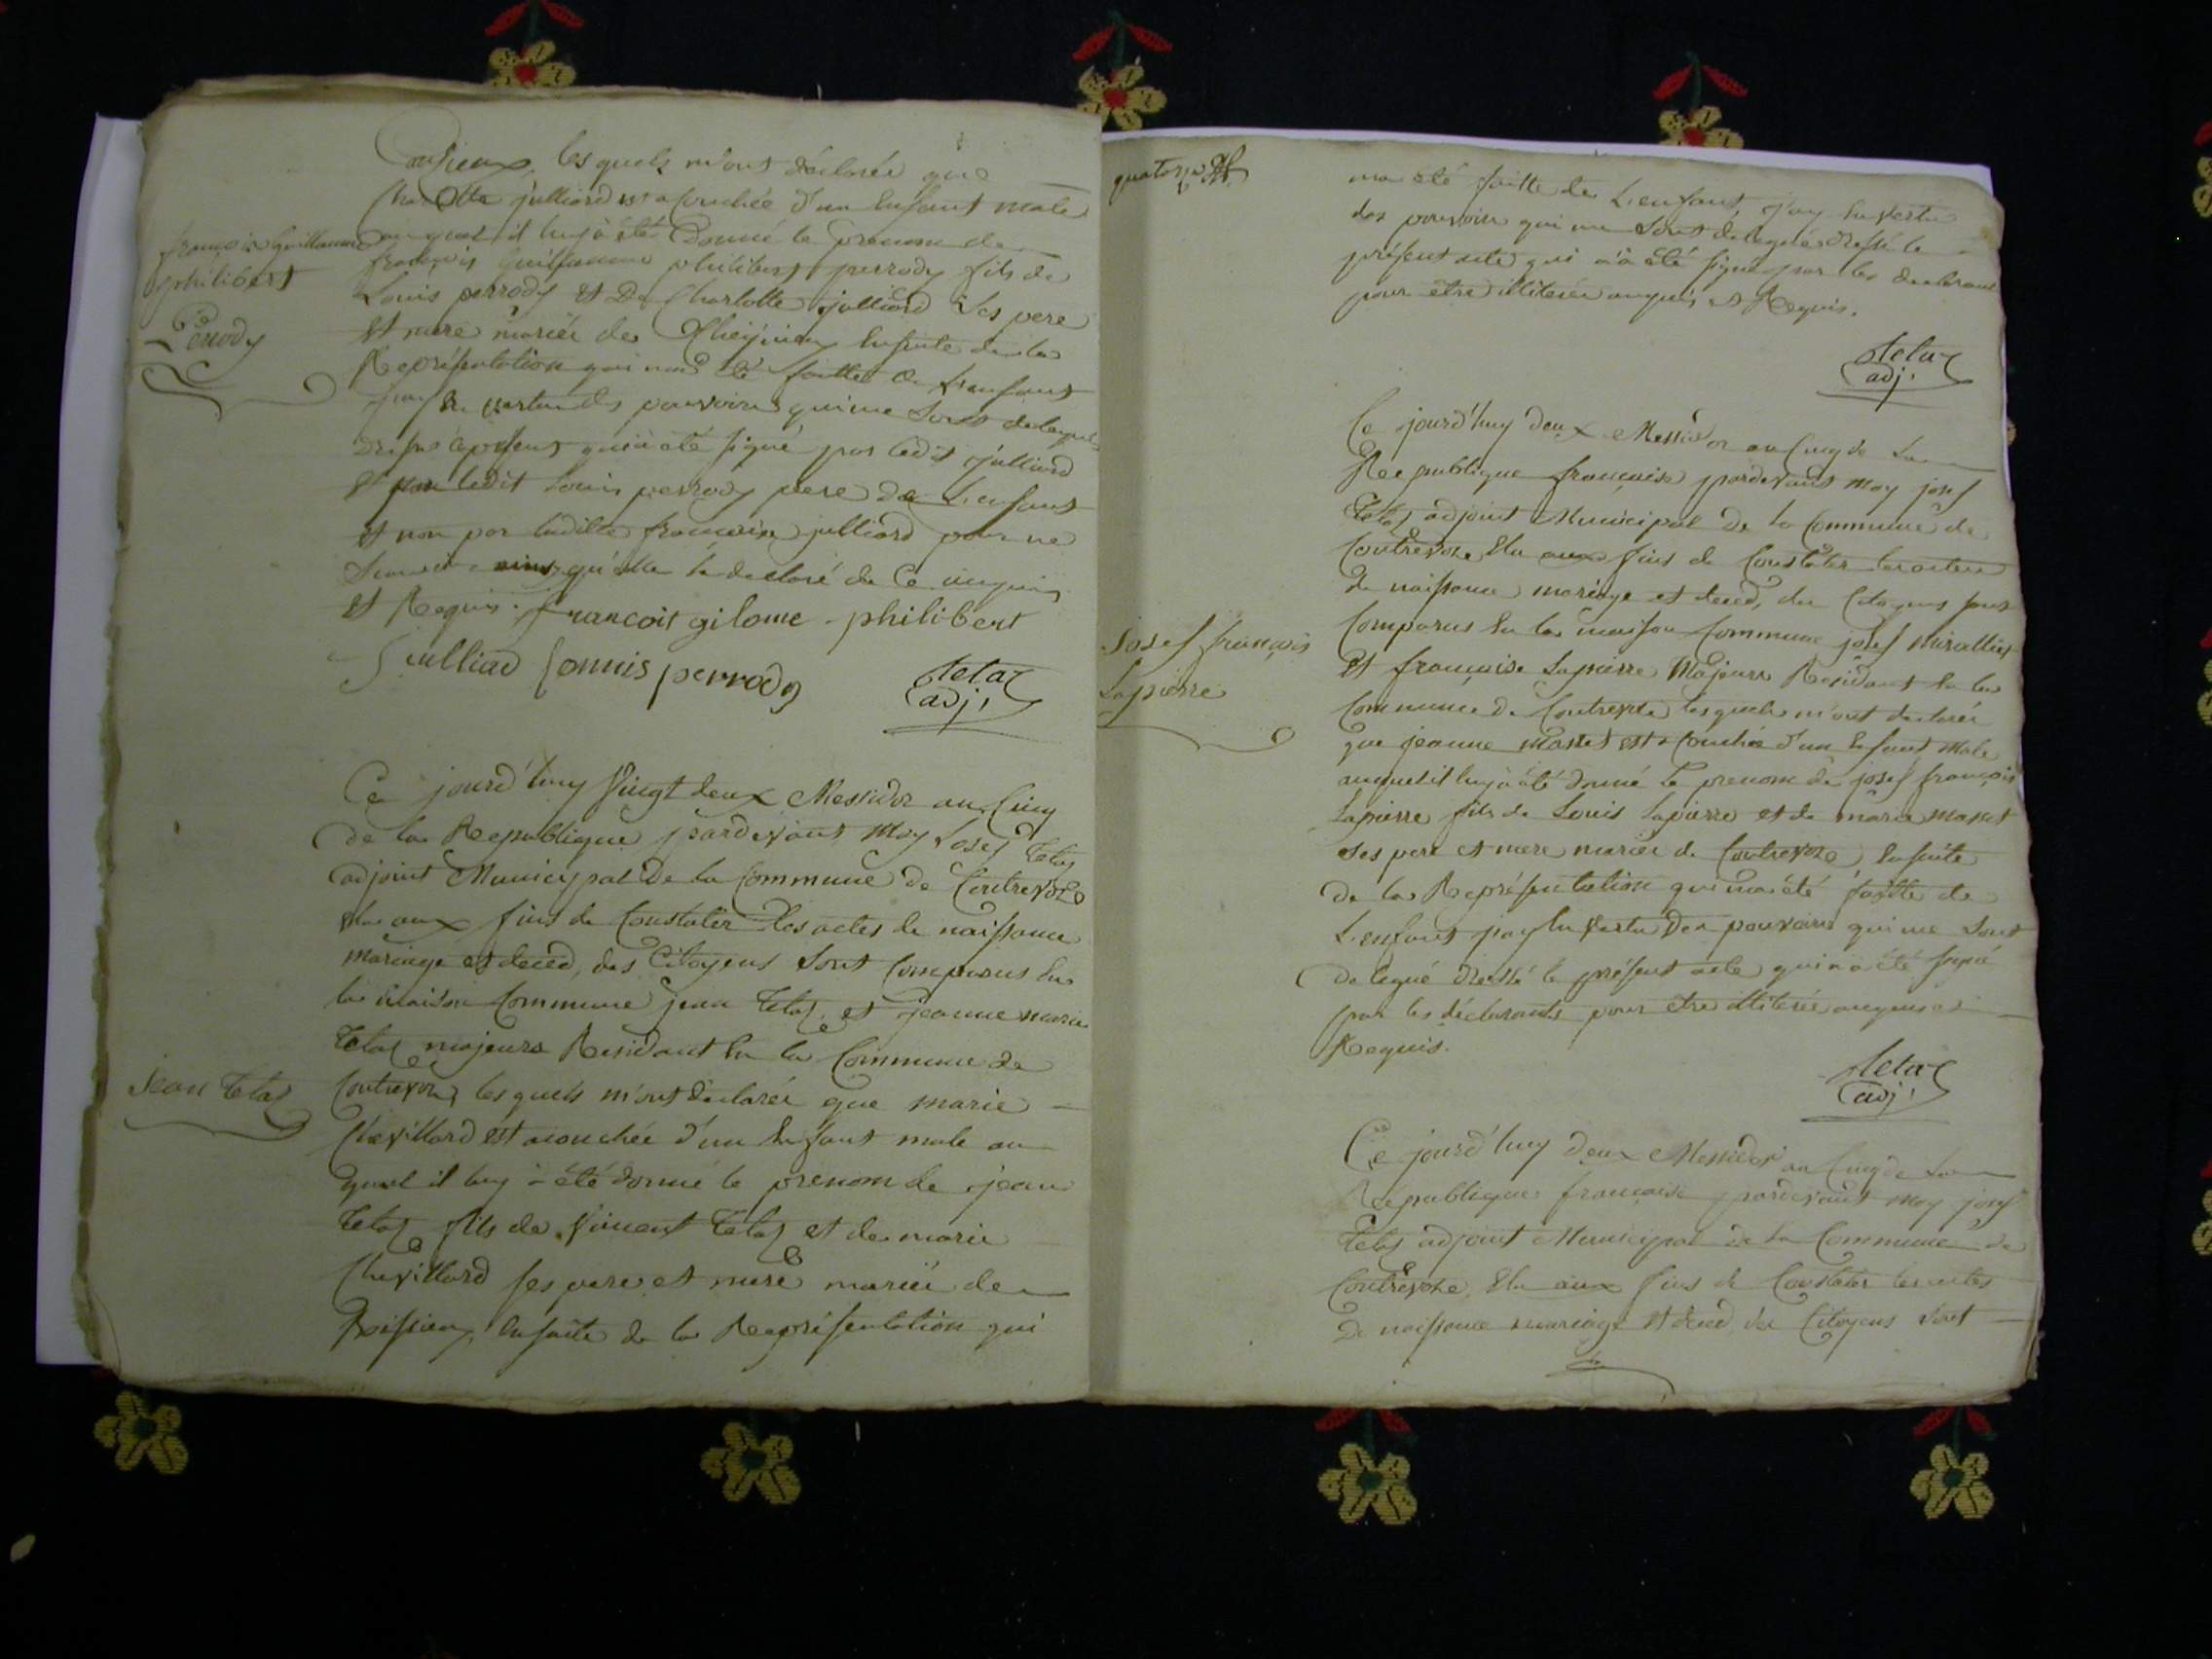 lesquels m'ont déclarée que
Charlotte julliard est acouchée d'un Enfant male
auquel il luy à été Donné le prenom de
françois Guillaume
philibert
Perrody
françois Guillaume philibert perrody fils de
Louis perrody et De Charlotte julliard ses pere
et mere mariée de Cheyniey Ensuite de la
Représentation qui m'a été faitte de L'enfant
j'ay En vertu des pouvoirs qui me sont delegués
dressé le present qui à été signé par ledit julliard
et par ledit Louis perrody pere de L'enfant
et non par laditte françoise julliard pour ne
sçavoir ainsy qu'elle la declaré de Ce enquis
et Requis. francois gilome - philibert
Julliad louuis perrody
tetaz
adj.
Ce jourd'huy Vingt deux Messidor an Cinq
de la Republique pardevant Moy Josef tetaz
adjoint Municipal De la Commune de Contrevoze
Elu aux fins de Constater les actes de naissance
mariage et deced, des Citoyens sont Comparus En
la maison Commune jean tetaz et jeanne marie
tetaz majeurs Residant En la Commune de
Jean tetaz
Contrevoz lesquels m'ont déclarée que marie
Chevillard est acouchée d'un Enfant male au
quel il luy à été donné le prenom de jean
tetaz fils de Vincent tetaz et de marie
Chevillard ses pere et mere mariée de
Ensuite de la Représentation qui
quatorze
ma été faitte de L'enfant, j'ay En vertu
des pouvoirs qui me sont delegués dressé le
présent acte qui n'à été signé par les declarant
pour etre illiterée enquis et Requis.
tetaz
adj.
Ce jourd'huy deux Messidor an Cinq de La
Republique françoise pardevant moy josef
tetaz adjoint Municipal De la Commune de
Contrevoze Elu aux fins de Constater les actes
de naissance mariage et deced, des Citoyens sont
Comparus En la maison Commune josef miralliet
Josef françois
Lapierre
et françoise Lapierre Majeurs Residant En la
Commune De Contrevoz lesquels m'ont declarée
que jeanne maret est acouchée d'un Enfant male
auquel il luy à été donné le prenom de josef françois
Lapierre fils de Louis Lapierre et de marie maret
ses pere et mere mariée de Contrevoze Ensuite
de la Représentation qui m'a été faitte de
L'enfant j'ay En vertu Des pouvoirs qui me sont
delegué dressé le présent acte qui n'à été signé
par les déclarants pour etre illiterée enquis et
Requis.
tetaz
adj.
Ce jourd'huy deux Messidor an Cinq de La
Republique françoise pardevant moy josef
tetaz adjoint Municipal de la Commune de
Contrevoze Elu aux fins de Constater les actes
De naissance mariage et deced des Citoyens sont